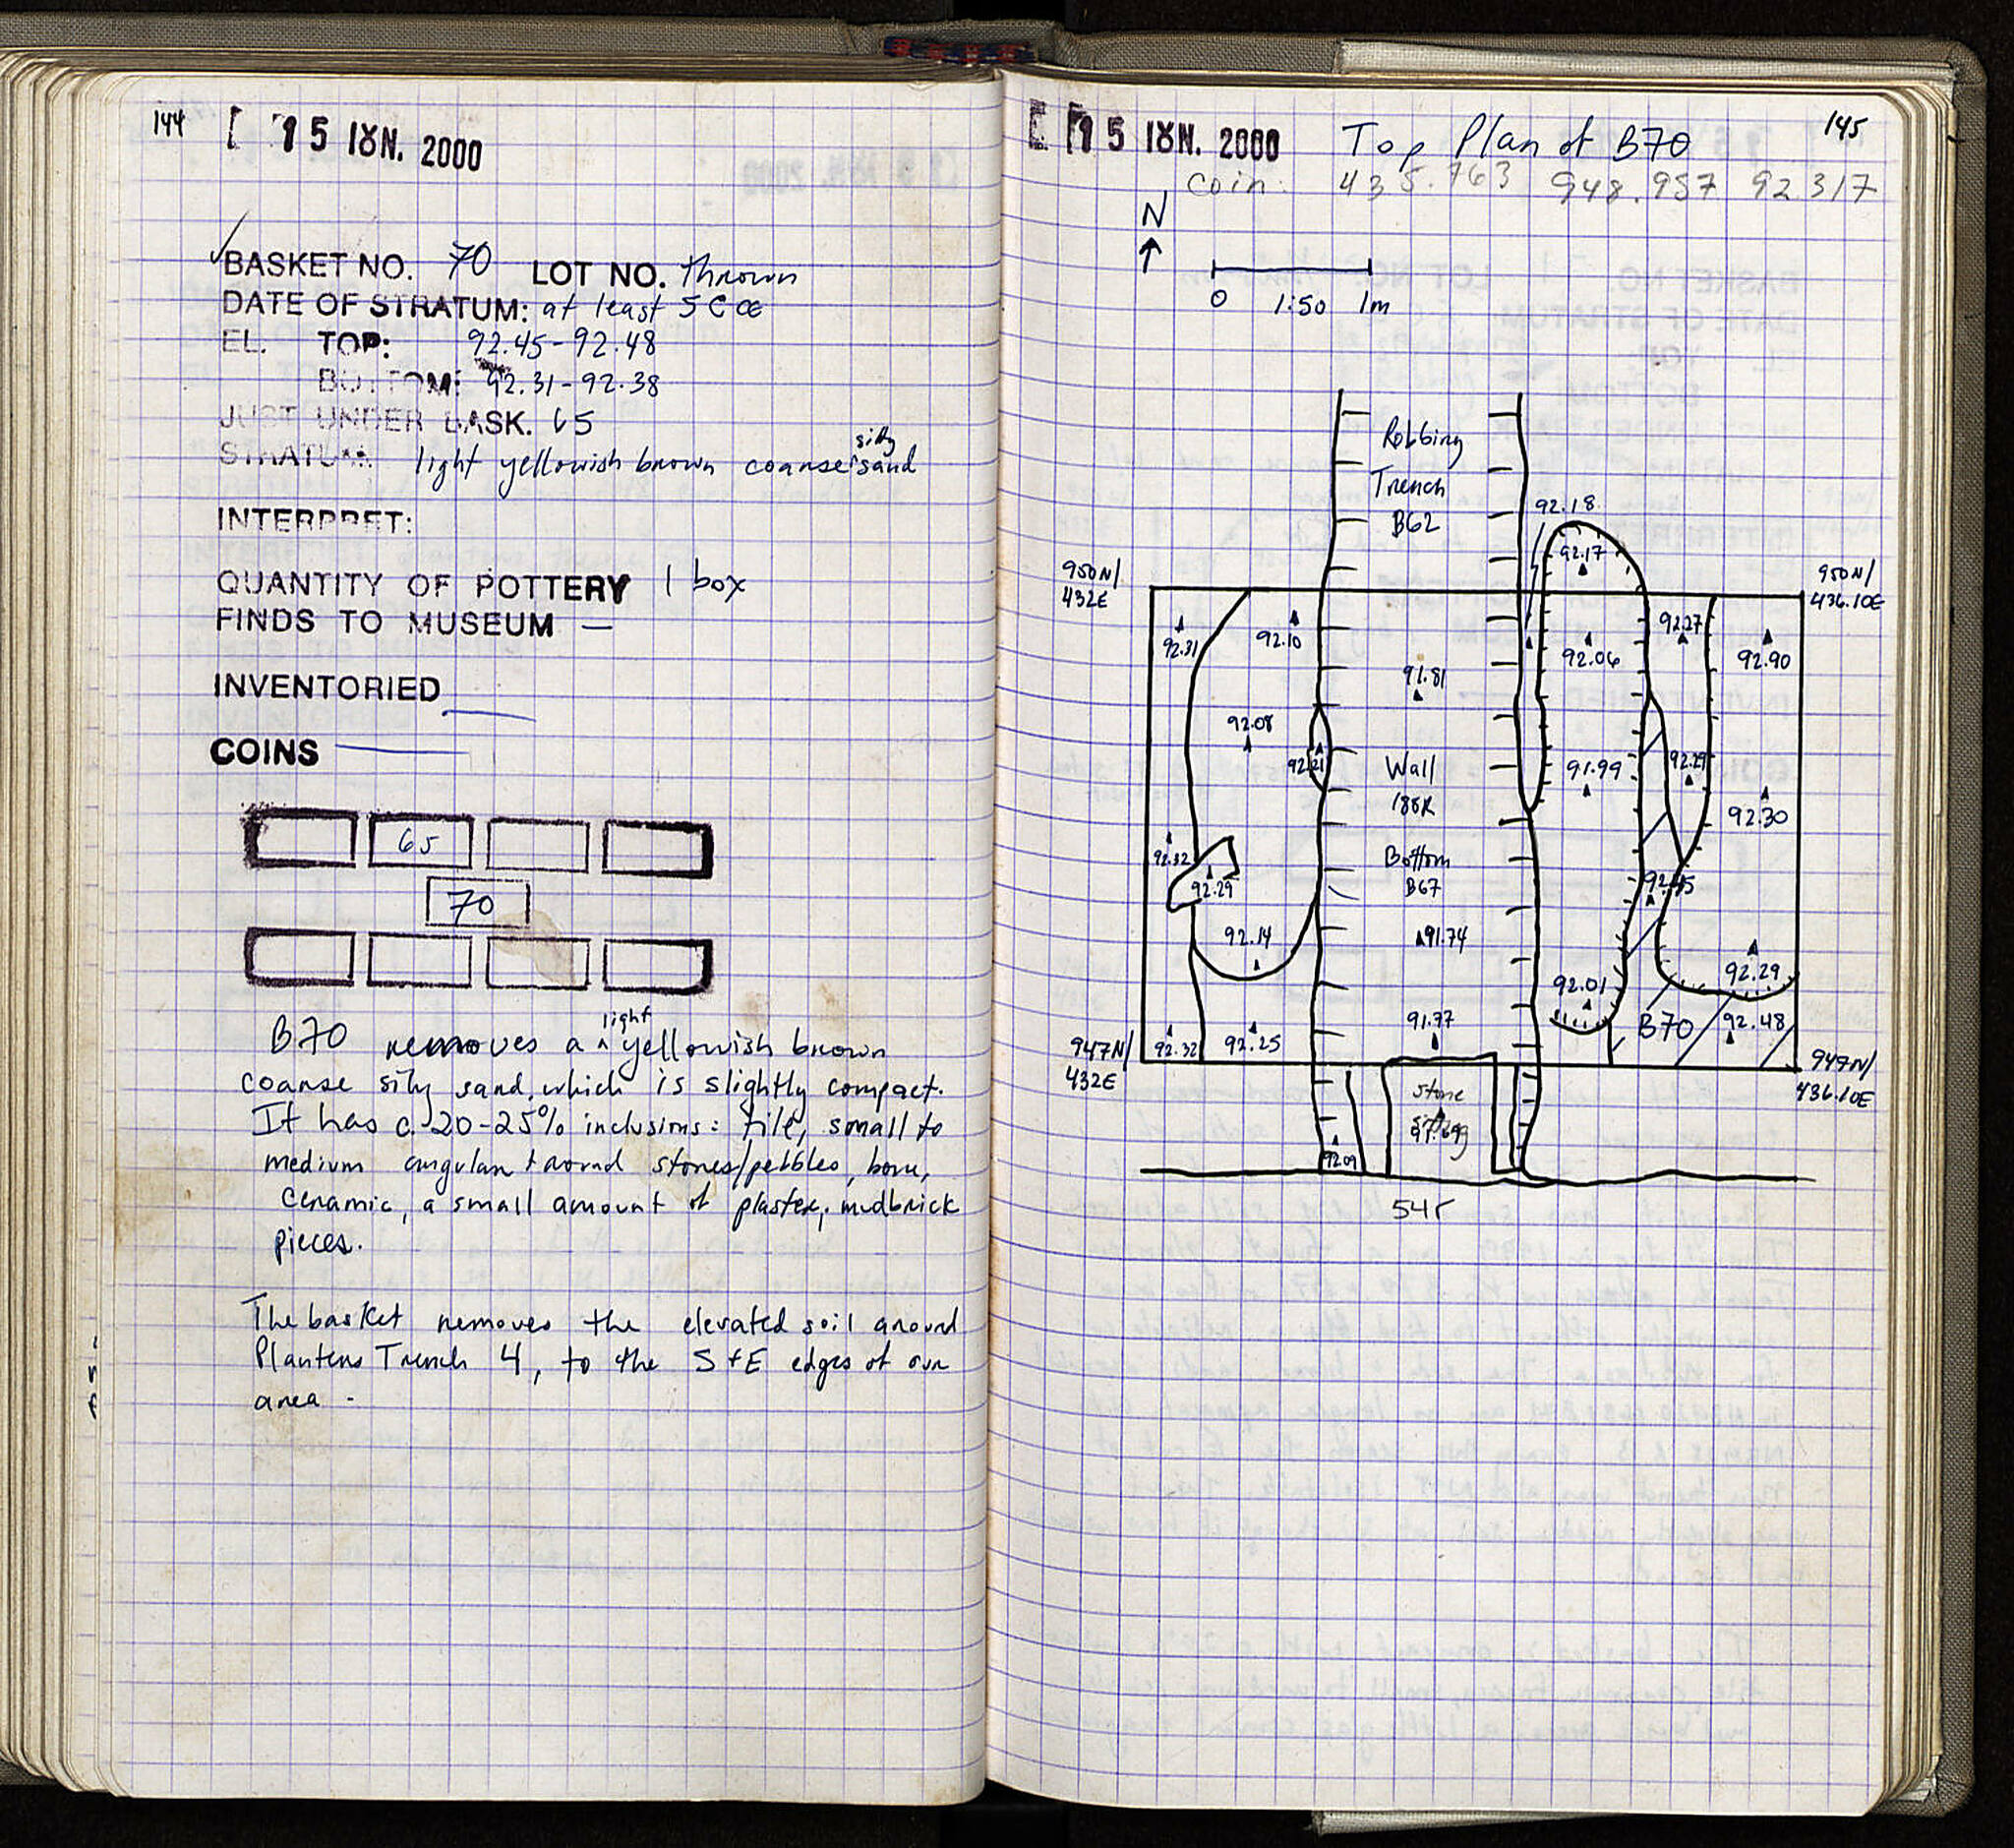 144
15 ΙΟΥΝ. 2000
BASKET NO. 70 LOT NO. thrown
DATE OF STRATUM: at least 5 C CE
EL. TOP: 92.45-92.48
BOTTOM: 92.31-92.38
JUST UNDER BASK. 65
silty
STRATUM: light yellowish brown coarse ^ sand
INTERPRET:
QUANTITY OF POTTERY 1 box
FINDS TO MUSEUM —
INVENTORIED —
COINS —
65
70
light
B70 removes a ^ yellowish brown
coarse silty sand, which is slightly compact.
It has c. 20-25% inclusions: tile, small to
medium angular + round stones/pebbles, bone,
ceramic, a small amount of plaster, mudbrick
pieces.
The basket removes the elevated soil around
Planters Trench 4, to the S+E edges of our
area -
145
15 ΙΟΥΝ. 2000 Top Plan of B70
coin: 435.763 948.957 92.317
N
0 1:50 1m
Robbing
Trench
B62
92.18
92.17
950N/
432E
950N/
436.10E
92.31
92.10
92.06
92.27
92.90
91.81
92.08
92.21
Wall
188R
91.99
92.29
92.30
92.32
92.29
Bottom
B67
92.45
92.14
91.74
92.01
92.29
91.77
B70
92.48
947N/
432E
92.32
92.25
947N/
436.10E
Stone
92.09
54r